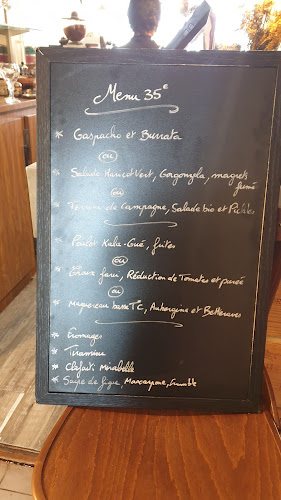 Menu 35€
* Gaspacho et Burrata
ou
* Salade Haricot Vert, Gorgonzola, magrets
fumé
ou
* Terrine de Campagne, Salade bio et Pickles
* Poulet Kala-Gué, frites
ou
* farci, Réduction de Tomates et purée
ou
* Maquereau basse T°C, Aubergine et Betteraves
* Fromages
* Tiramisu
* Clafouti Mirabelle
* Soupe de figue, Mascarpone, Crumble